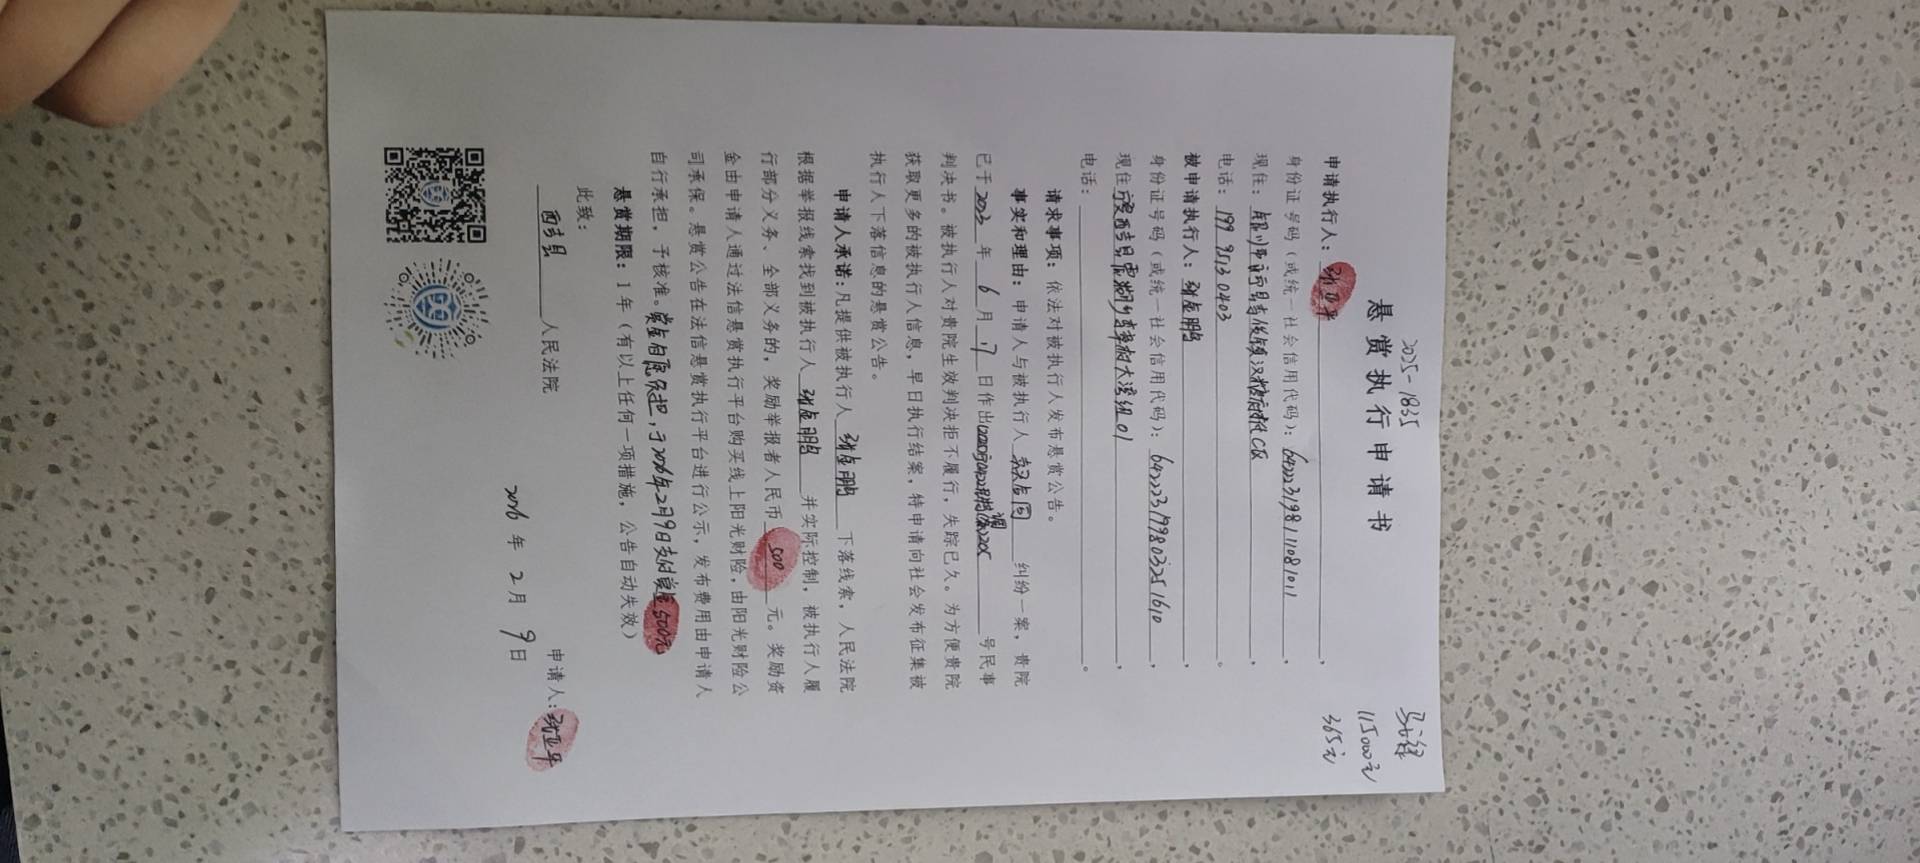 2025-1835
悬赏执行申请书
马锋
115000元
365元
申请执行人：张亚平，
身份证号码（或统一社会信用代码）：642223198111081011，
现住：
电话：199 9513 0403。
被申请执行人：鹏，
身份证号码（或统一社会信用代码）：642223199803251610，
现住宁夏西吉县大湾组01，
电话：。
请求事项：依法对被执行人发布悬赏公告。
事实和理由：申请人与被执行人合同纠纷一案，贵院
已于2023年6月17日作出号民事
判决书。被执行人对贵院生效判决拒不履行，失踪已久。为方便贵院
获取更多的被执行人信息，早日执行结案，特申请向社会发布征集被
执行人下落信息的悬赏公告。
申请人承诺：凡提供被执行人鹏下落线索，人民法院
根据举报线索找到被执行人鹏并实际控制，被执行人履
行部分义务、全部义务的，奖励举报者人民币500元。奖励资
金由申请人通过法信悬赏执行平台购买线上阳光财险，由阳光财险公
司承保。悬赏公告在法信悬赏执行平台进行公示，发布费用由申请人
自行承担，予核准。赏金自愿承担，于2026年2月9日支付赏金500元
悬赏期限：1年（有以上任何一项措施，公告自动失效）
此致：
西吉县人民法院
申请人：张亚平
2026年2月9日